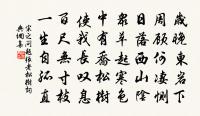 歲晚東岩下
周顧何悽惻
日落西山陰
衆草起寒色
中有喬松樹
使我長歎息
百尺無寸枝
一生自孤直
宋之問題張老松樹詞